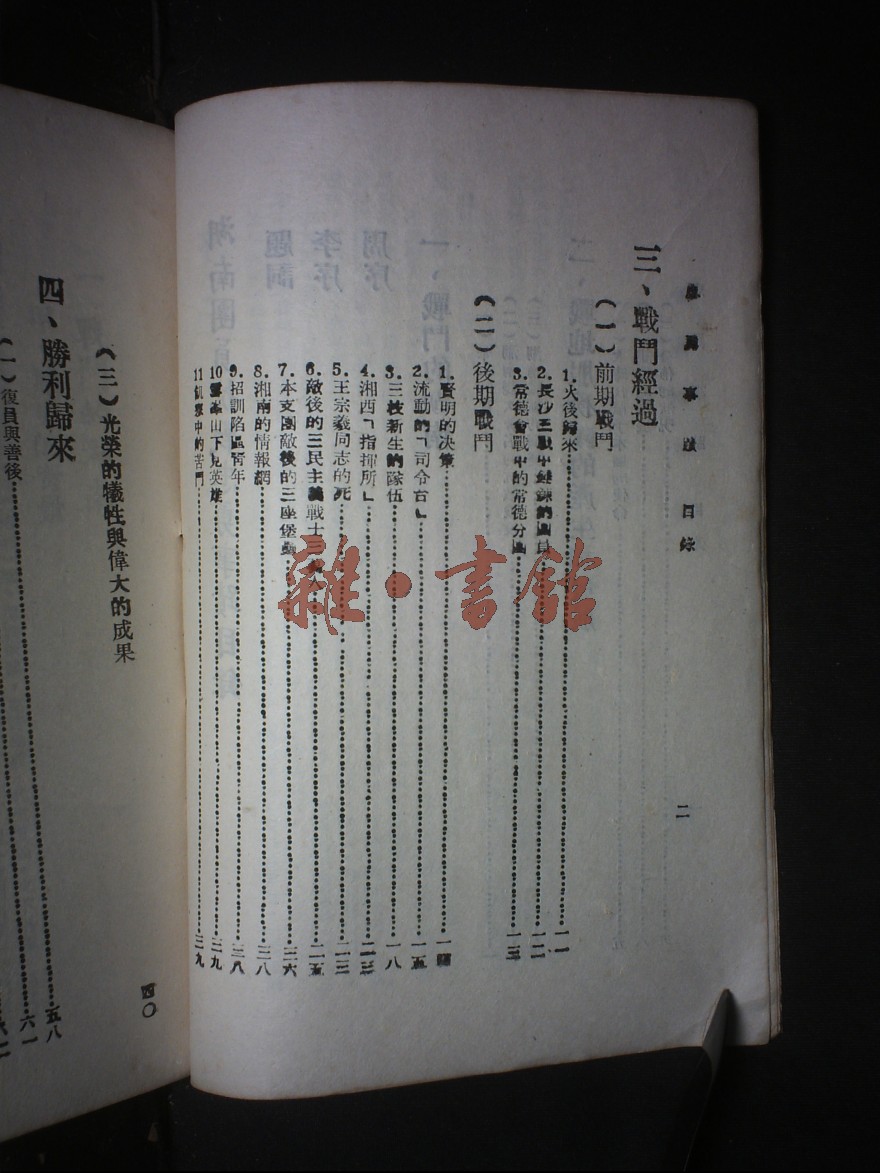 目錄
二
三、戰鬥經過
(一)前期戰鬥
1.火後歸來……一一
2.長沙三戰中 的團員……一二
3.常德會戰中的常德分團……一三
(二)後期戰鬥
1.賢明的決策……一
2.流動的「司令台」……一五
3.三枝新生的隊伍……一八
4.湘西「指揮所」……二三
5.王宗義同志的死……二三
6.敵後的三民主義戰士……二五
7.本支團敵後的三座堡壘……二六
8.湘南的情報網……三八
9.招訓陷區青年……三八
10.雪峯山下見英雄……三九
11.飢寒中的苦鬥……三九
(三)光榮的犧牲與偉大的成果
四〇
四、勝利歸來
(一)復員與善後……五八
六一
雜·書館